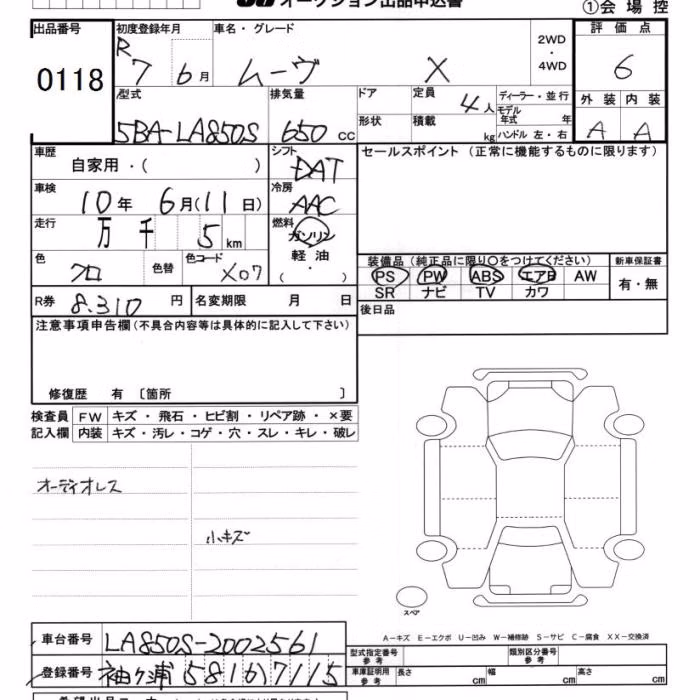 オークション出品申込書 ①会場控
出品番号 初度登録年月 車名・グレード 2WD ・ 4WD 評価点
0118 R 7 6月 ムーヴ X 6
型式 排気量 ドア 定員 4人 ディーラー・並行 外装 内装
5BA-LA850S 650 CC 形状 積載 kg モデル年式 年 A A
ハンドル 左・右
車歴 自家用・( ) シフト DAT セールスポイント (正常に機能するものに限ります)
車検 10年 6月(11日) 冷房 AAC
走行 万 千 5 km 燃料 ガソリン
軽油
( ・ )
色 クロ 色替 色コード X07 装備品 (純正品に限り〇をつけてください) 新車保証書
PS PW ABS エアB AW 有・無
SR ナビ TV カワ
R券 8.310 円 名変期限 月 日 後日品
注意事項申告欄(不具合内容等は具体的に記入して下さい)
修復歴 有 〔箇所 〕
検査員 FW キズ・飛石・ヒビ割・リペア跡・×要
記入欄 内装 キズ・汚レ・コゲ・穴・スレ・キレ・破レ
オーディオレス
小キズ
スペア
A−キズ E−エクボ U−凹み W−補修跡 S−サビ C−腐食 XX−交換済
車台番号 LA850S-2002561 型式指定番号 参考 類別区分番号 参考
登録番号 袖ヶ浦 581 も 7115 車庫証明用 参考 長さ cm 幅 cm 高さ cm